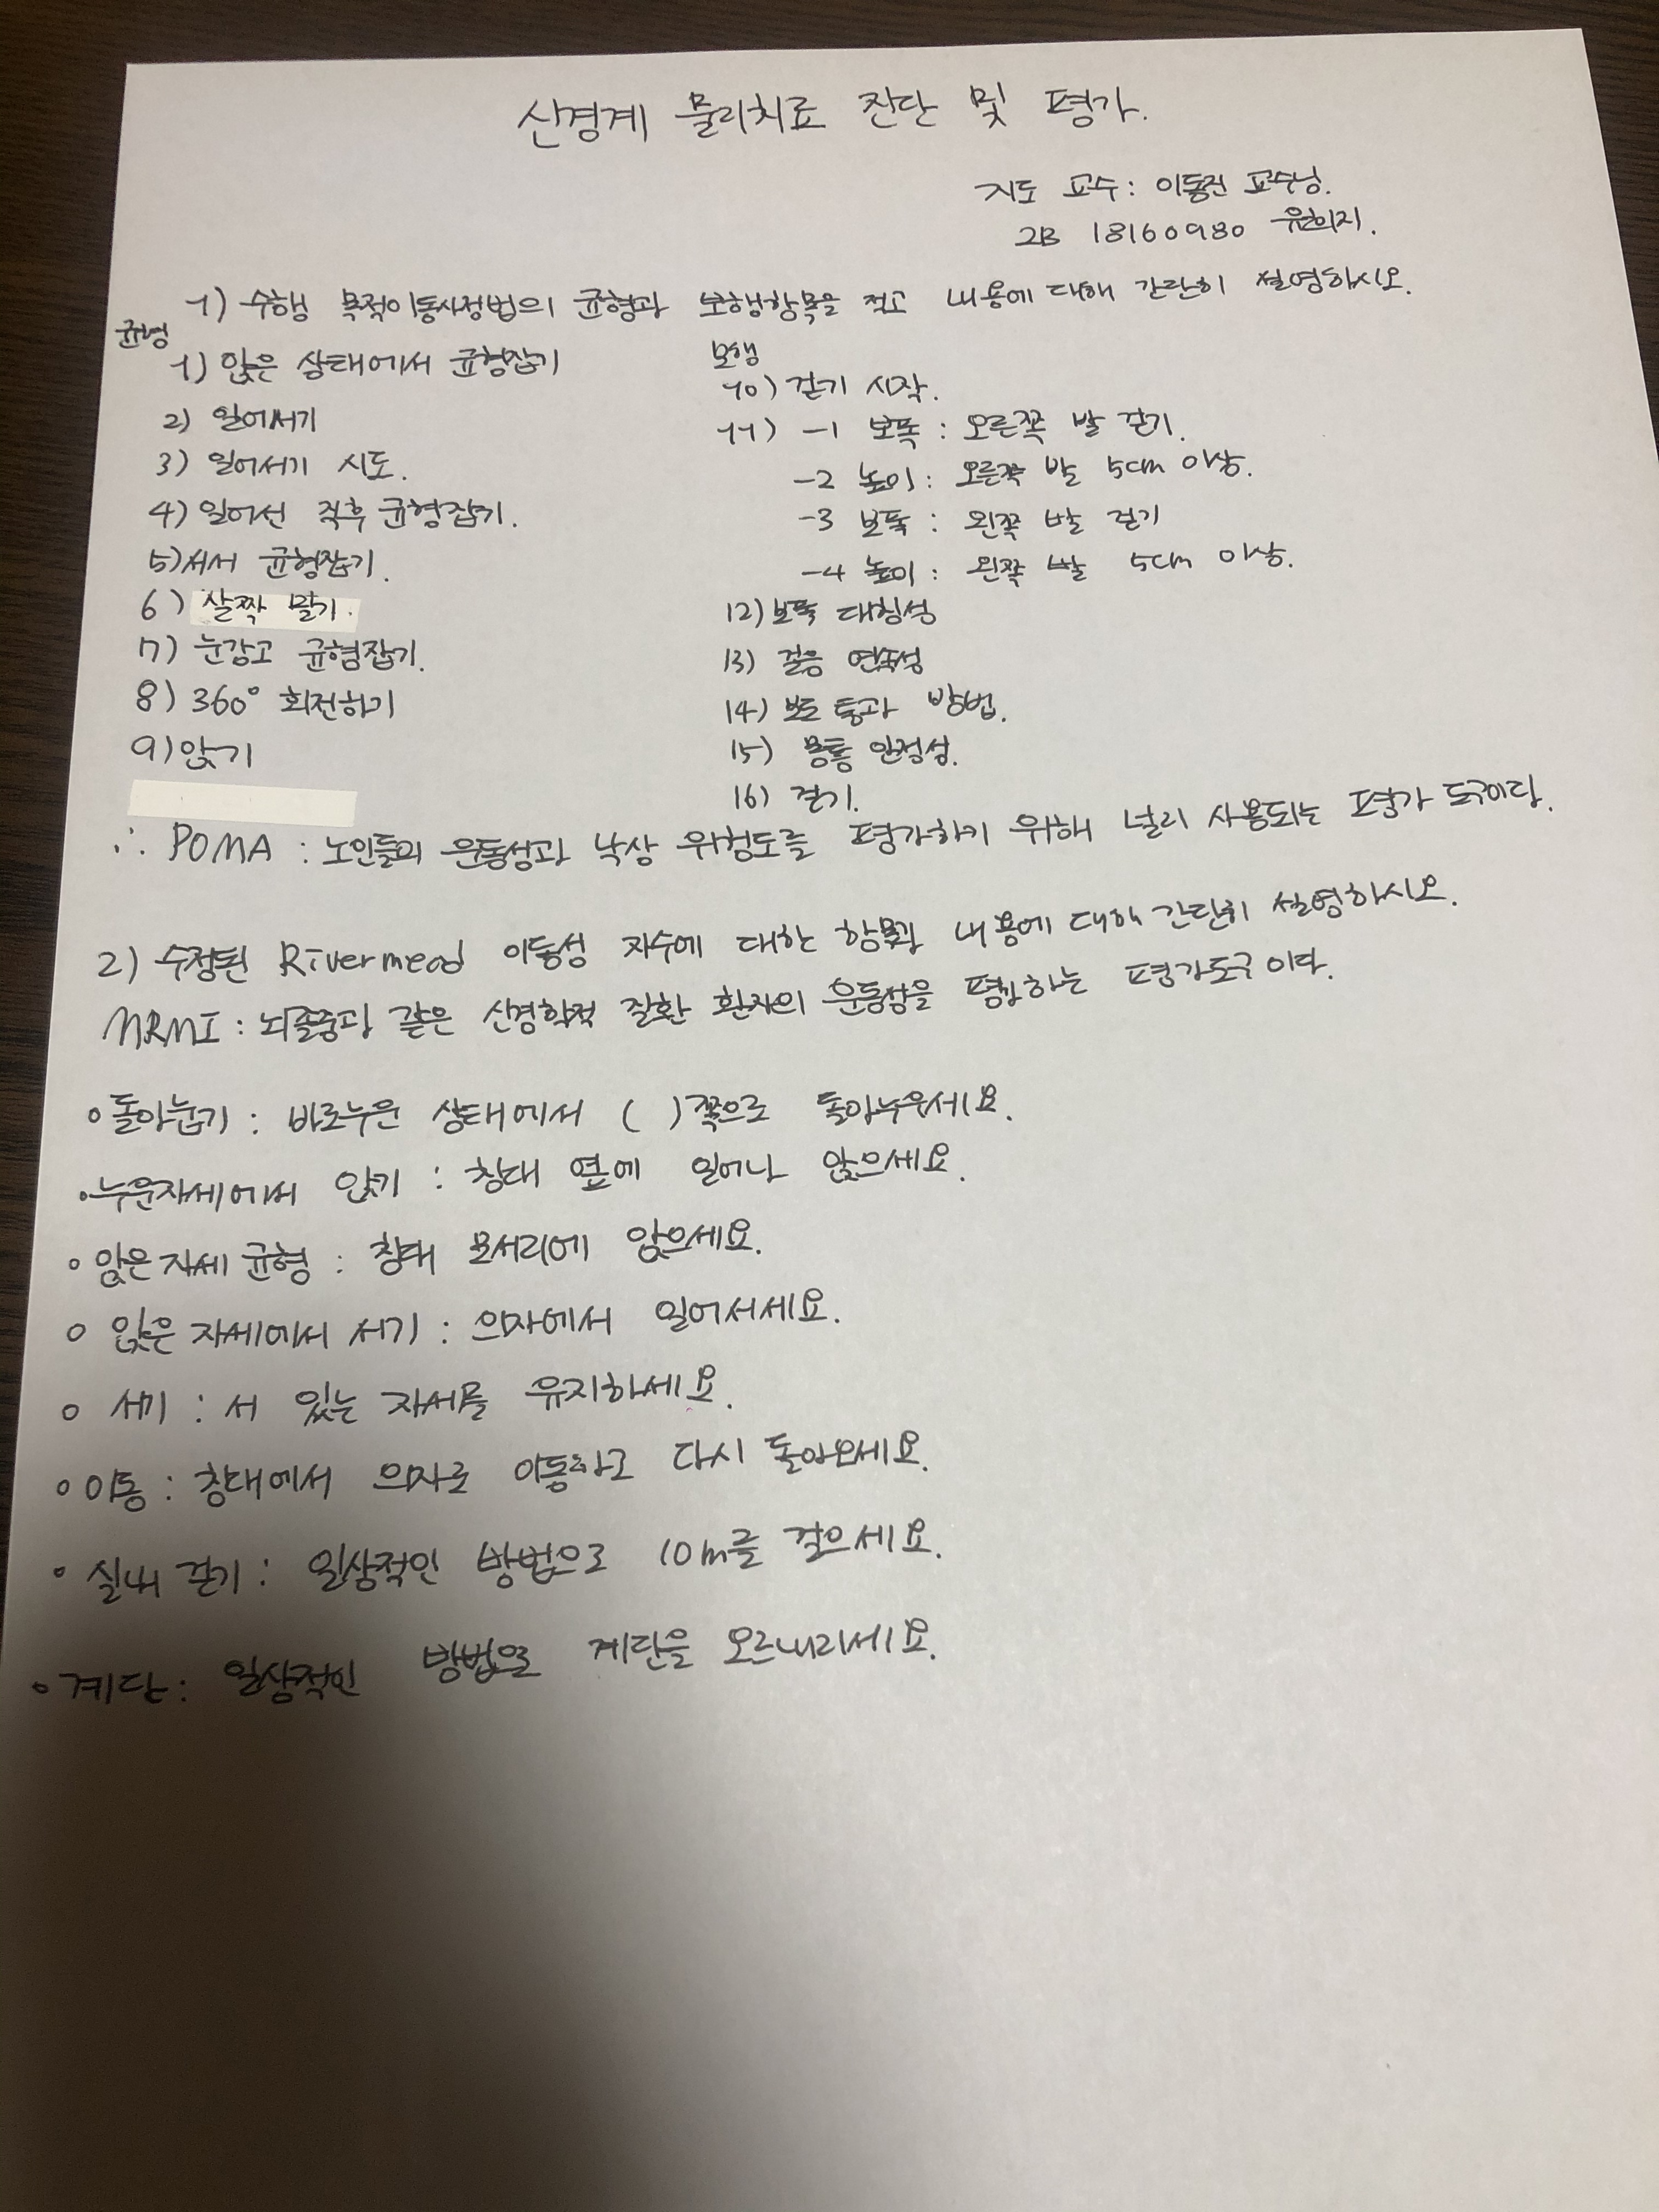 신경계 물리치료 진단 및 평가.
지도 교수 : 이동진 교수님.
2B 18160980 윤희지.
1) 수행 목적이동사정법의 균형과 보행항목을 적고 내용에 대해 간단히 설명하시오.
균형
1) 앉은 상태에서 균형잡기
2) 일어서기
3) 일어서기 시도.
4) 일어선 직후 균형잡기.
5) 서서 균형잡기.
6) 살짝 밀기.
7) 눈감고 균형잡기.
8) 360° 회전하기
9) 앉기
보행
10) 걷기 시작.
11) -1 보폭 : 오른쪽 발 걷기.
-2 높이 : 오른쪽 발 5cm 이상.
-3 보폭 : 왼쪽 발 걷기
-4 높이 : 왼쪽 발 5cm 이상.
12) 보폭 대칭성
13) 걸음 연속성
14) 보도 통과 방법.
15) 몸통 안정성.
16) 걷기.
∴ POMA : 노인들의 운동성과 낙상 위험도를 평가하기 위해 널리 사용되는 평가 도구이다.
2) 수정된 Rivermead 이동성 지수에 대한 항목과 내용에 대해 간단히 설명하시오.
MRMI : 뇌졸중과 같은 신경학적 질환 환자의 운동성을 평가하는 평가도구이다.
• 돌아눕기 : 바로누운 상태에서 ( )쪽으로 돌아누우세요.
• 누운자세에서 앉기 : 침대 옆에 일어나 앉으세요.
• 앉은자세 균형 : 침대 모서리에 앉으세요.
• 앉은 자세에서 서기 : 의자에서 일어서세요.
• 서기 : 서 있는 자세를 유지하세요.
• 이동 : 침대에서 의자로 이동하고 다시 돌아오세요.
• 실내 걷기 : 일상적인 방법으로 10m를 걸으세요.
• 계단 : 일상적인 방법으로 계단을 오르내리세요.